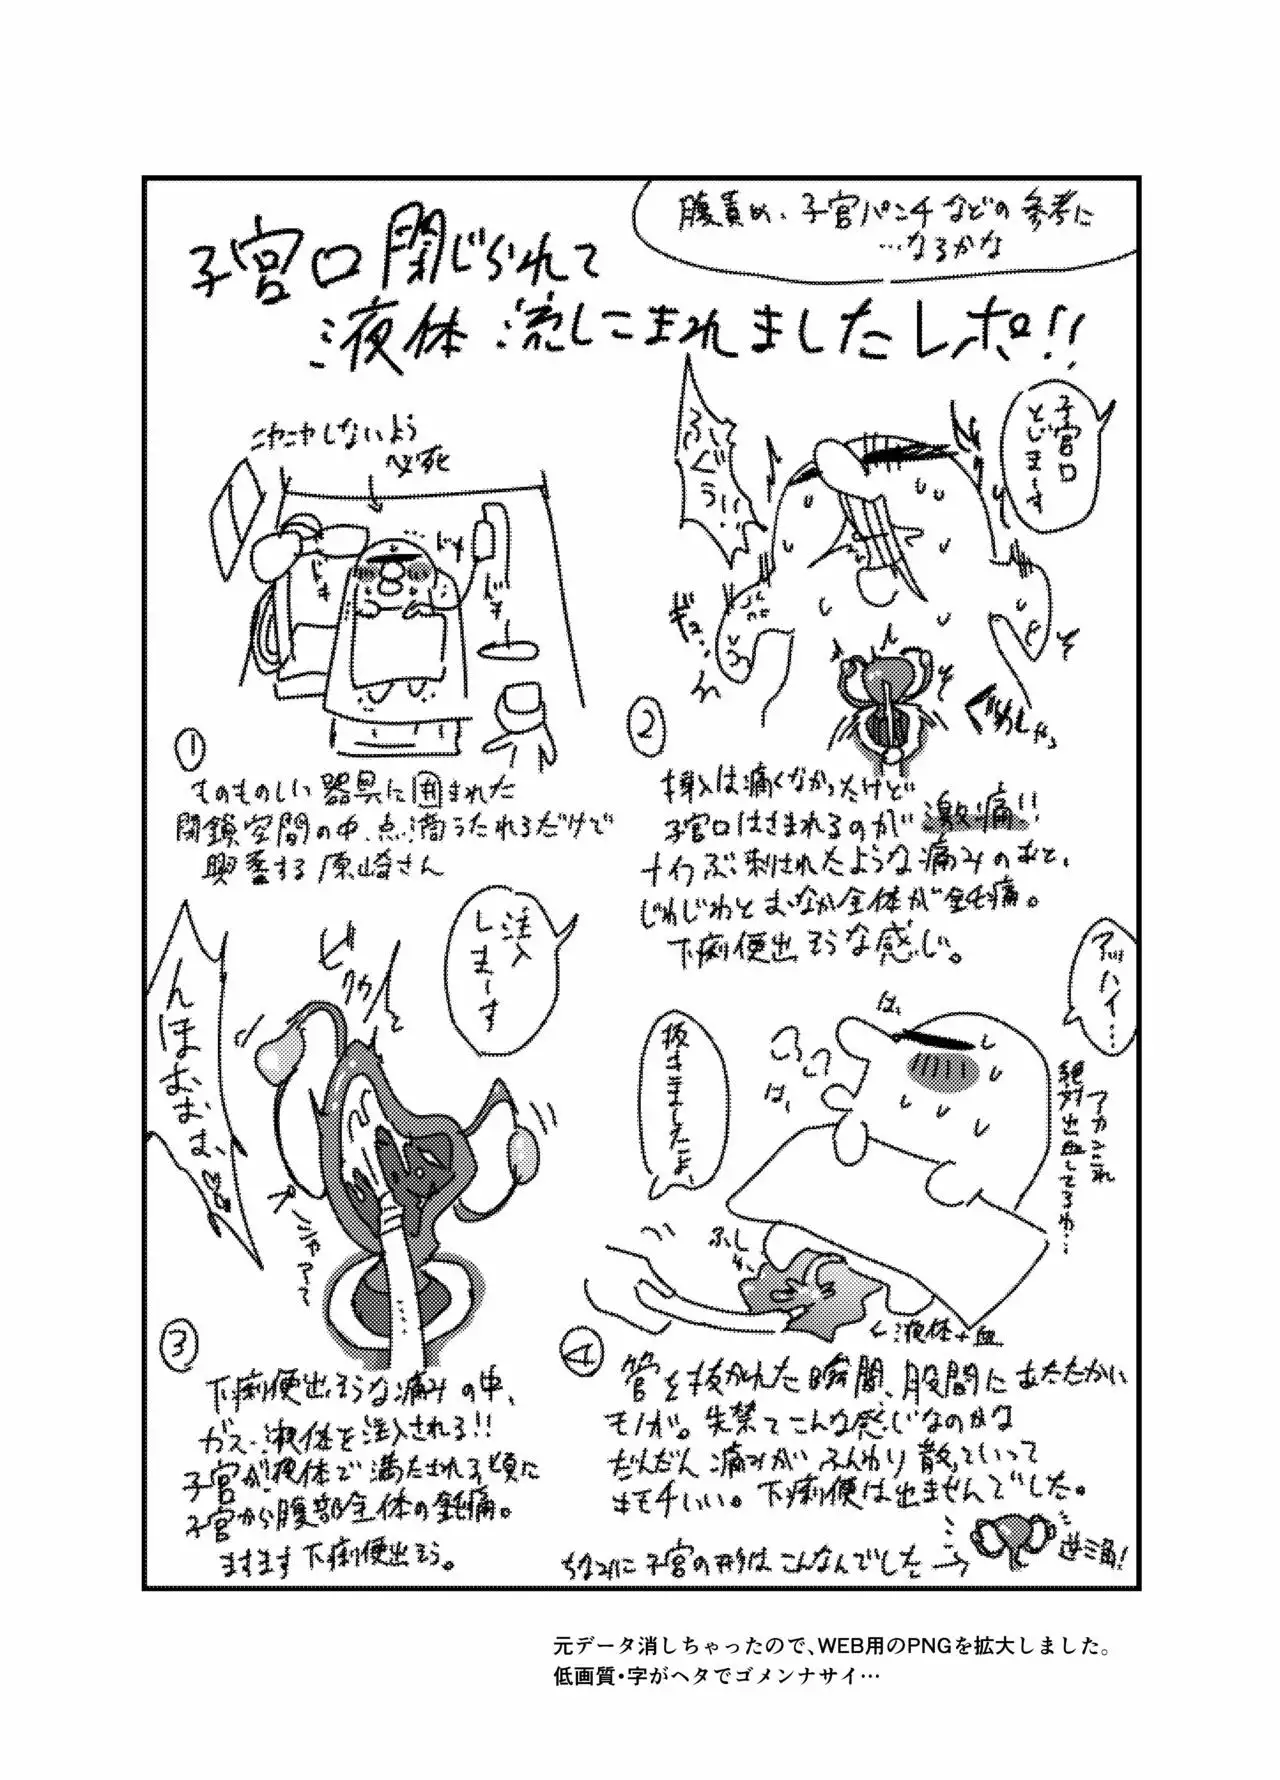 腹責め、子宮パンチなどの参考に
…なるかな
子宮口閉じられて
液体流しこまれましたレポ!!
ニヤニヤしないよう
必死
ドキ
ドキ
ドキ
①
ものものしい器具に囲まれた
閉鎖空間の中、点滴うたれるだけで
興奮する原崎さん
子宮口
とじまーす
ふぐうぅ…
ギュ…
②
挿入は痛くなかったけど
子宮口はさまれるのが激痛!!
ナイフぶっ刺されたような痛みのあと、
じわじわとおなか全体が鈍痛。
下痢便出そうな感じ。
注入
しまーす
んほおおお、
③
下痢便出そうな痛みの中、
ガス・液体を注入される!!
子宮が液体で満たされる頃に
子宮から腹部全体の鈍痛。
ますます下痢便出そう。
アッハイ…
抜きましたよ、
アカンこれ
絶対出血してるわ…
は、
は、
←液体+血
④
管を抜かれた瞬間、股間にあたたかい
モノが。失禁てこんな感じなのかな
だんだん痛みがふんわり散っていって
キモチいい。下痢便は出ませんでした。
ちなみに子宮の形はこんなんでした→
逆三角!
元データ消しちゃったので、WEB用のPNGを拡大しました。
低画質・字がヘタでゴメンナサイ…